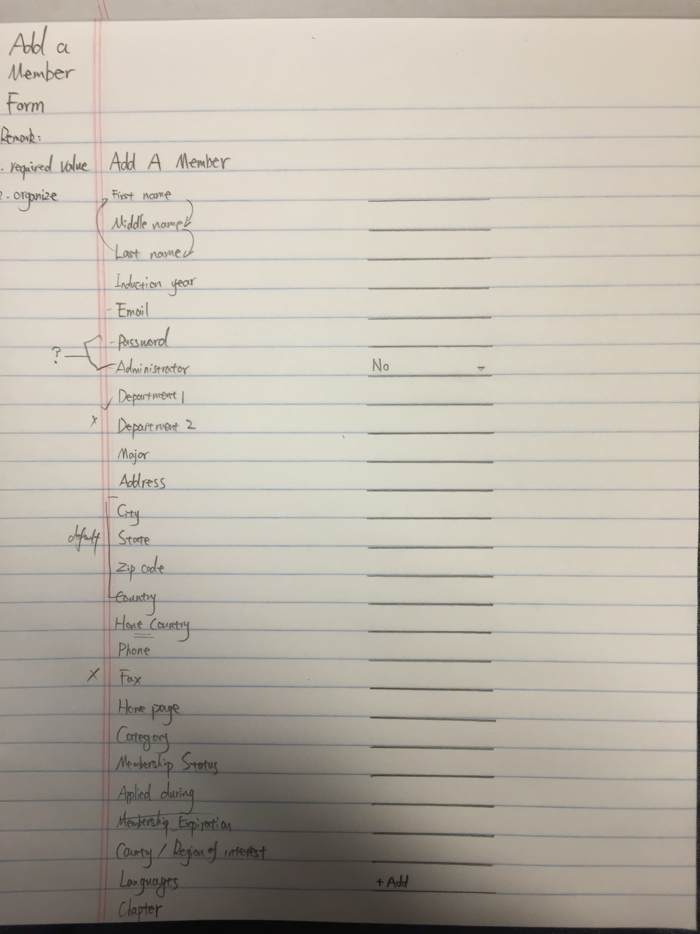 Add a
Member
Form
Remark:
. required value
Add A Member
2. organize
First name
Middle name
Last name
Induction year
- Email
- Password
?
Administrator
No
Department 1
x Department 2
Major
Address
City
default
State
Zip code
Country
Home Country
Phone
x Fax
Home page
Category
Membership Status
Applied during
Membership Expiration
County / Region of interest
Languages
+ Add
Chapter